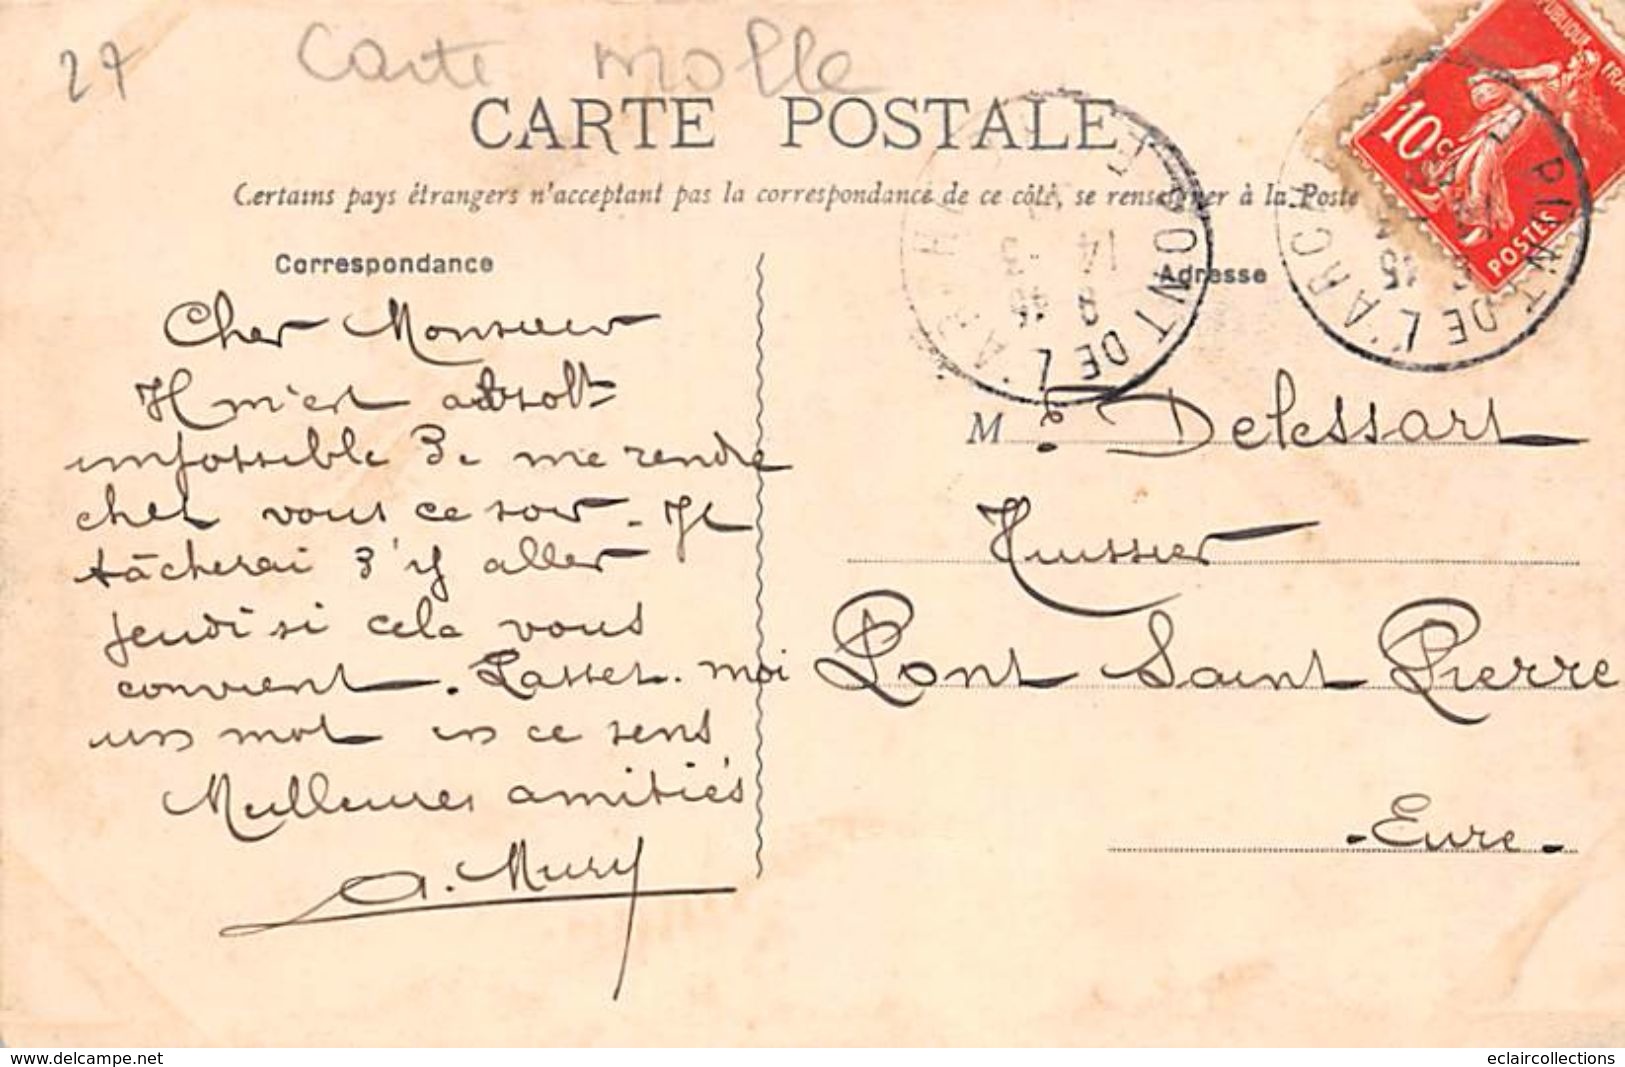 27
Carte molle
CARTE POSTALE
Certains pays étrangers n'acceptant pas la correspondance de ce côté, se renseigner à la Poste
RÉPUBLIQUE FRA
10c
POSTES
PONT DE L'ARCHE
14
PONT DE L'ARC
15
Correspondance
Cher Monsieur
Il m'est absolt
impossible de me rendre
chez vous ce soir. Je
tâcherai d'y aller
jeudi si cela vous
convient. Laissez-moi
un mot en ce sens
Meilleures amitiés
A. Mury
Adresse
M e. Delessart
Huissier
Pont Saint Pierre
- Eure -
www.delcampe.net
eclaircollections